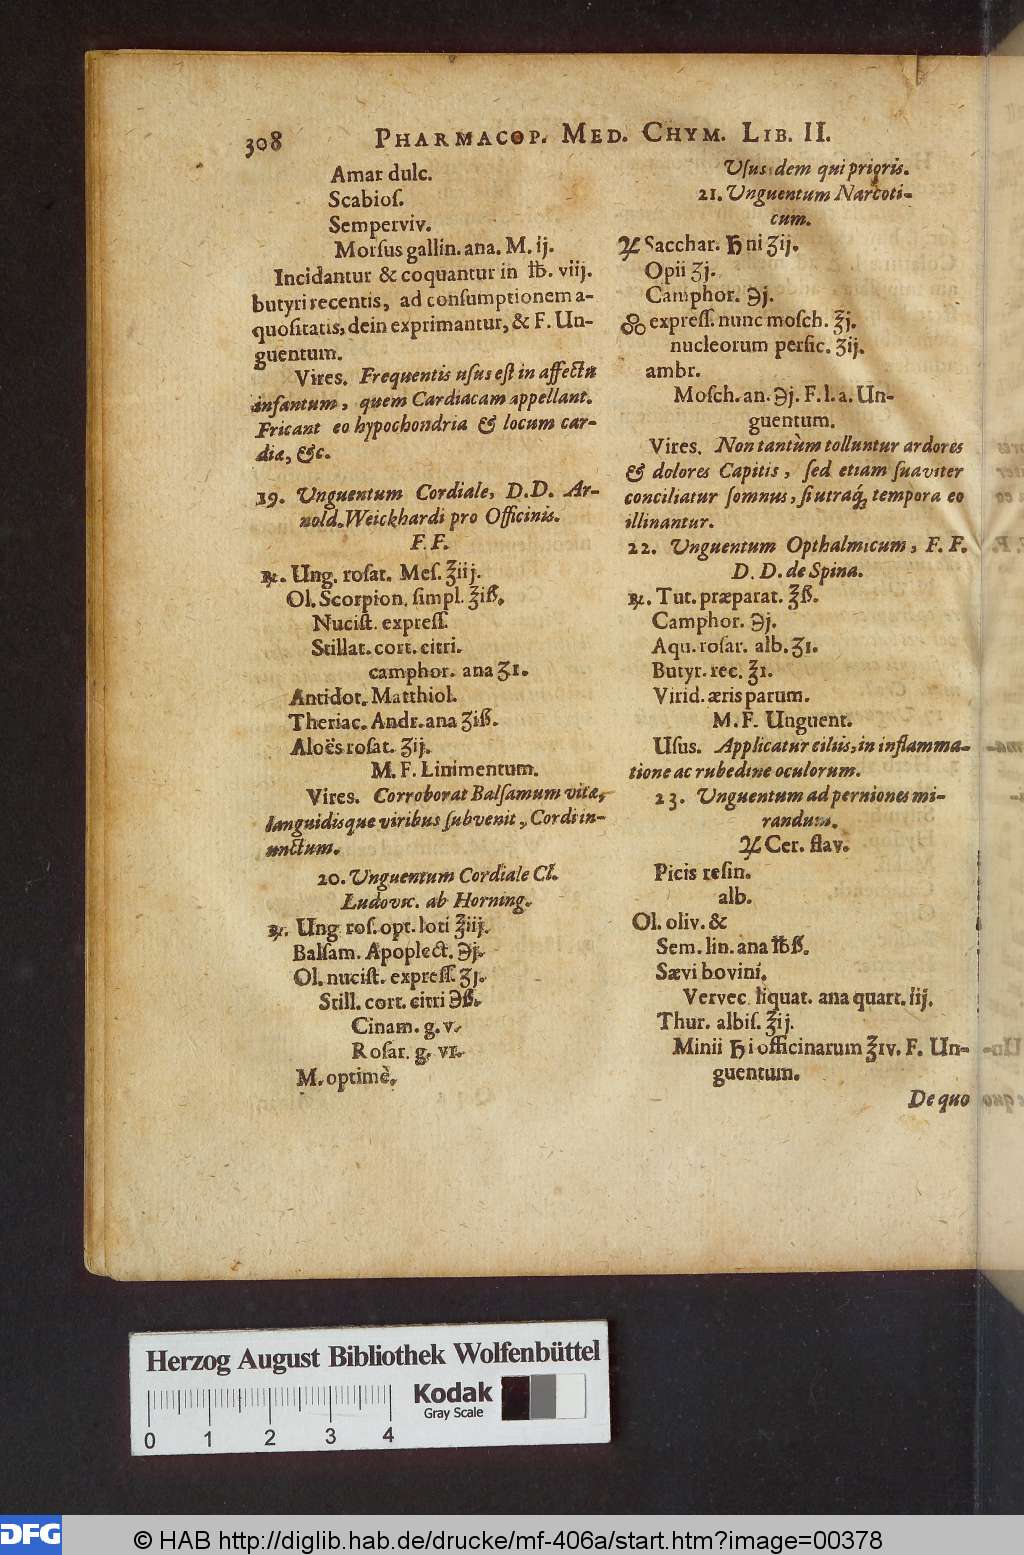 308 PHARMACOP. MED. CHYM. LIB. II.
Amar dulc.
Scabioſ.
Semperviv.
Morſus gallin. ana. M. ij.
Incidantur & coquantur in ℔. viij.
butyri recentis, ad conſumptionem a-
quoſitatis, dein exprimantur, & F. Un-
guentum.
Vires. Frequentis uſus eſt in affectu
infantum, quem Cardiacam appellant.
Fricant eo hypochondria & locum car-
dia, &c.
19. Unguentum Cordiale, D.D. Ar-
nold. Weickhardi pro Officinis.
F. F.
℞. Ung. roſat. Meſ. ℥iij.
Ol. Scorpion. ſimpl. ℥iß.
Nuciſt. expreſſ.
Stillat. cort. citri.
camphor. ana ʒ1.
Antidot. Matthiol.
Theriac. Andr. ana ʒiß.
Aloës roſat. ʒij.
M. F. Linimentum.
Vires. Corroborat Balſamum vitæ,
languidisque viribus ſubvenit, Cordi in-
unctum.
20. Unguentum Cordiale Cl.
Ludovic. ab Horning.
℞. Ung roſ. opt. loti ℥iij.
Balſam. Apoplect. ℈j.
Ol. nuciſt. expreſſ. ʒj.
Still. cort. citri ℈ß.
Cinam. g. v.
Roſar. g. vı.
M. optimè.
Uſus idem qui prioris.
21. Unguentum Narcoti-
cum.
♃ Sacchar. ♄ni ʒij.
Opii ʒj.
Camphor. ℈j.
expreſſ. nunc moſch. ℥j.
nucleorum perſic. ʒij.
ambr.
Moſch. an. ℈j. F. l. a. Un-
guentum.
Vires. Non tantùm tolluntur ardores
& dolores Capitis, ſed etiam ſuaviter
conciliatur ſomnus, ſi utraq́; tempora eo
illinantur.
22. Unguentum Opthalmicum, F. F.
D. D. de Spina.
℞. Tut. præparat. ℥ß.
Camphor. ℈j.
Aqu. roſar. alb. ʒ1.
Butyr. rec. ℥1.
Virid. æris parum.
M. F. Unguent.
Uſus. Applicatur ciliis, in inflamma-
tione ac rubedine oculorum.
23. Unguentum ad perniones mi-
randum.
♃ Cer. flav.
Picis reſin.
alb.
Ol. oliv. &
Sem. lin. ana ℔ß.
Sævi bovini.
Vervec. liquat. ana quart. iij.
Thur. albiſ. ℥ij.
Minii ♄i officinarum ℥ıv. F. Un-
guentum.
De quo
Herzog August Bibliothek Wolfenbüttel
Kodak
Gray Scale
0 1 2 3 4
DFG
© HAB http://diglib.hab.de/drucke/mf-406a/start.htm?image=00378